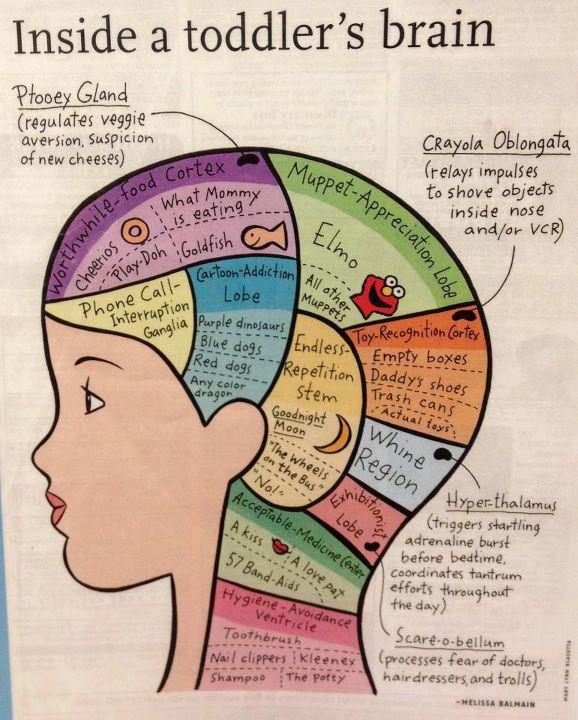 Inside a toddler's brain
Ptooey Gland
(regulates veggie
aversion, suspicion
of new cheeses)
Crayola Oblongata
(relays impulses
to shove objects
inside nose
and/or VCR)
Worthwhile-food Cortex
What Mommy
is eating
Cheerios
Play-Doh
Goldfish
Muppet-Appreciation Lobe
Elmo
All other
Muppets
Phone Call-
Interruption
Ganglia
Cartoon-Addiction
Lobe
Purple dinosaurs
Blue dogs
Red dogs
Any color
dragon
Endless-
Repetition
Stem
Goodnight
Moon
"The Wheels
on the Bus"
"No!"
Toy-Recognition Cortex
Empty boxes
Daddy's shoes
Trash cans
Actual toys
Whine
Region
Exhibitionist
Lobe
Hyper-thalamus
(triggers startling
adrenaline burst
before bedtime,
coordinates tantrum
efforts throughout
the day)
Acceptable-Medicine Center
A kiss
A love pat
57 Band-Aids
Hygiene-Avoidance
Ventricle
Toothbrush
Nail clippers
Kleenex
Shampoo
The potty
Scare-o-bellum
(processes fear of doctors,
hairdressers, and trolls)
-MELISSA BALMAIN
MARY LYNN BLASUTTA